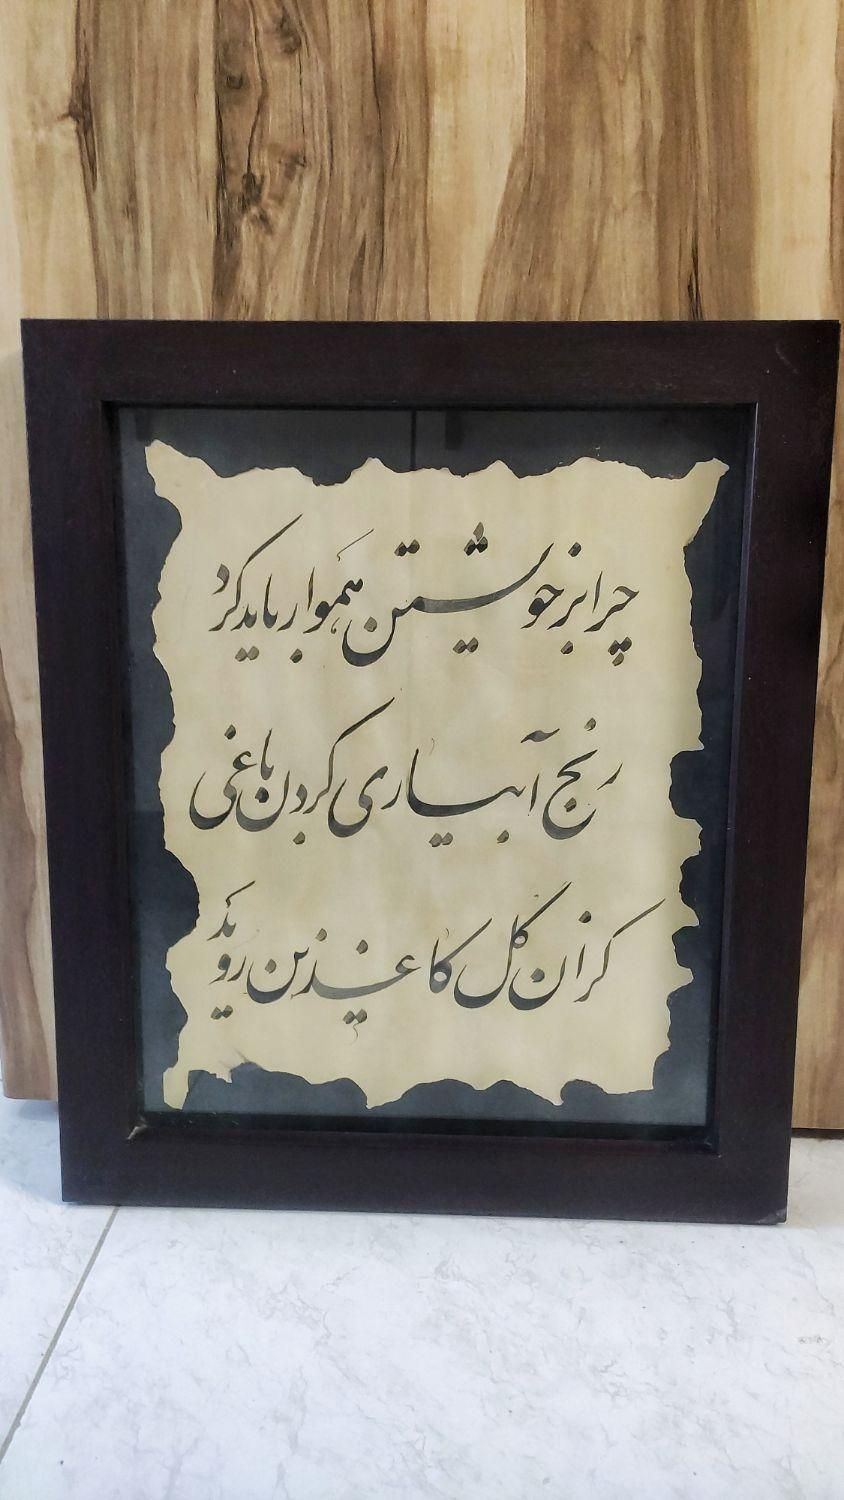 چرا بر خویشتن هموار باید کرد
رنج آبیاری کردن باغی
کز آن گل کاغذین روید